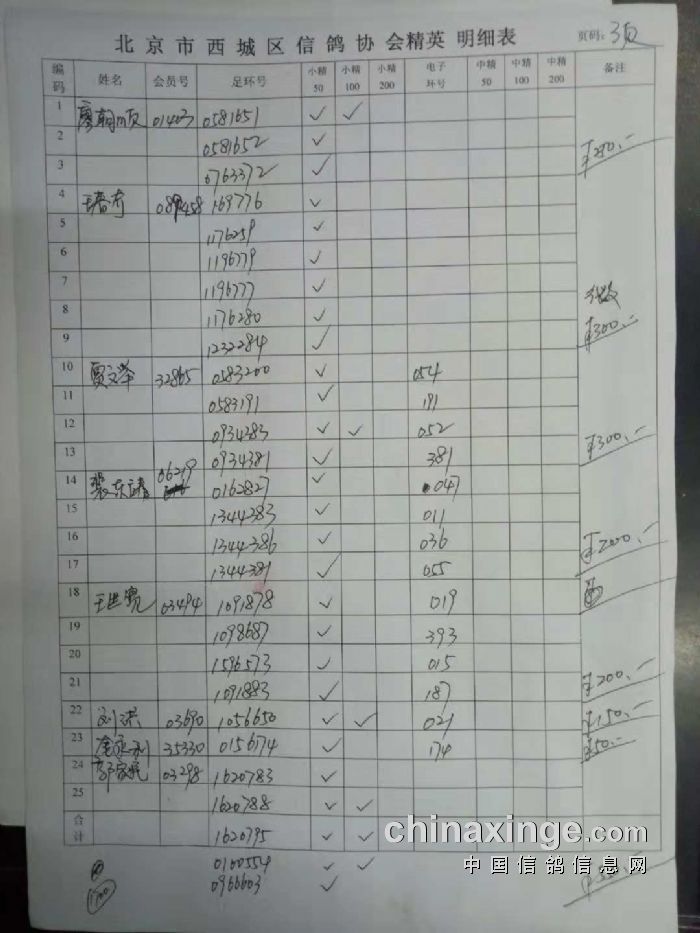 北京市西城区信鸽协会精英明细表 页码:3页
编码 姓名 会员号 足环号 小精50 小精100 小精200 电子环号 中精50 中精100 中精200 备注
1 廖朝顺 01403 0581651 ✓ ✓
2 0581652 ✓
3 0763372 ✓ ¥250.-
4 089458 169776 ✓
5 1176259 ✓
6 1196779 ✓
7 1196777 ✓
8 1176280 ✓
9 1232284 ✓ ¥300.-
10 贾文华 32865 0583200 ✓ 054
11 0583191 ✓ 191
12 0934383 ✓ ✓ 052
13 0934381 ✓ 381 ¥300.-
14 06219 0162827 ✓ 047
15 1344383 ✓ 011
16 1344386 ✓ 036
17 1344381 ✓ 055 ¥200.-
18 03494 1091878 ✓ 019
19 1098687 ✓ 393
20 1596573 ✓ 015
21 1091883 ✓ 187 ¥200.-
22 刘洪 03690 1056650 ✓ ✓ 021 ¥150.-
23 35330 0156174 ✓ 174 ¥50.-
24 03298 1620783 ✓
25 1620788 ✓ ✓
合计 1620795 ✓ ✓
0100554 ✓ ✓
0966603 ✓
chinaxinge.com
中国信鸽信息网